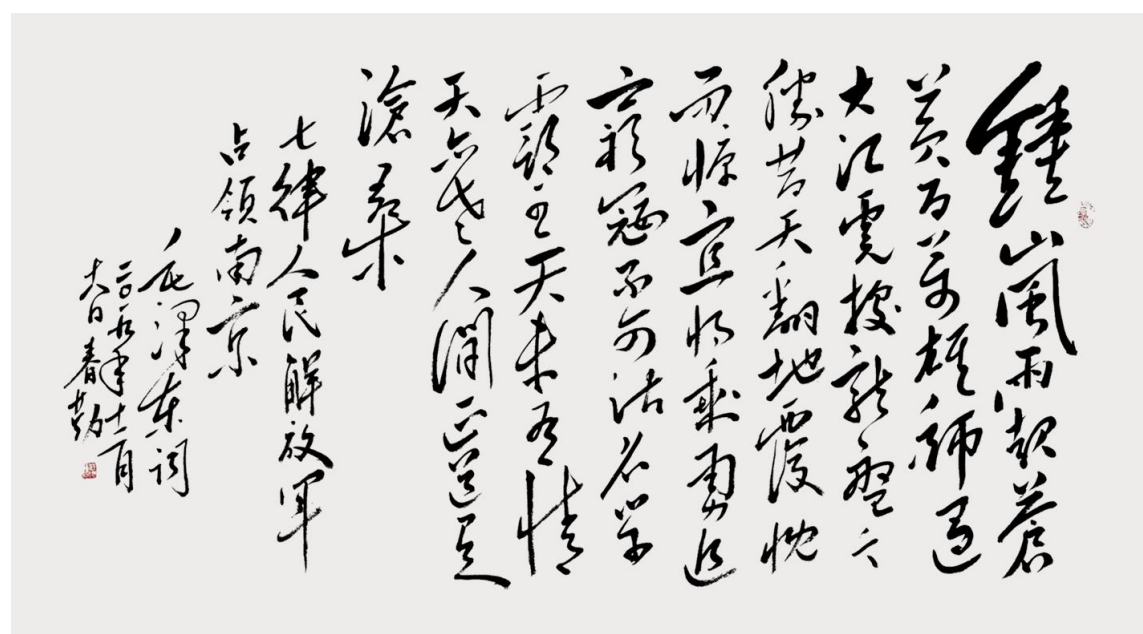 鍾山風雨起蒼
黃百萬雄師過
大江虎據龍盤今
勝昔天翻地覆慨
而慷宜將剩勇追
窮寇不可沽名學
霸王天若有情
天亦老人間正道是
滄桑
七律人民解放軍
占領南京
毛澤東詞
二〇一九年十一月
六日春勤